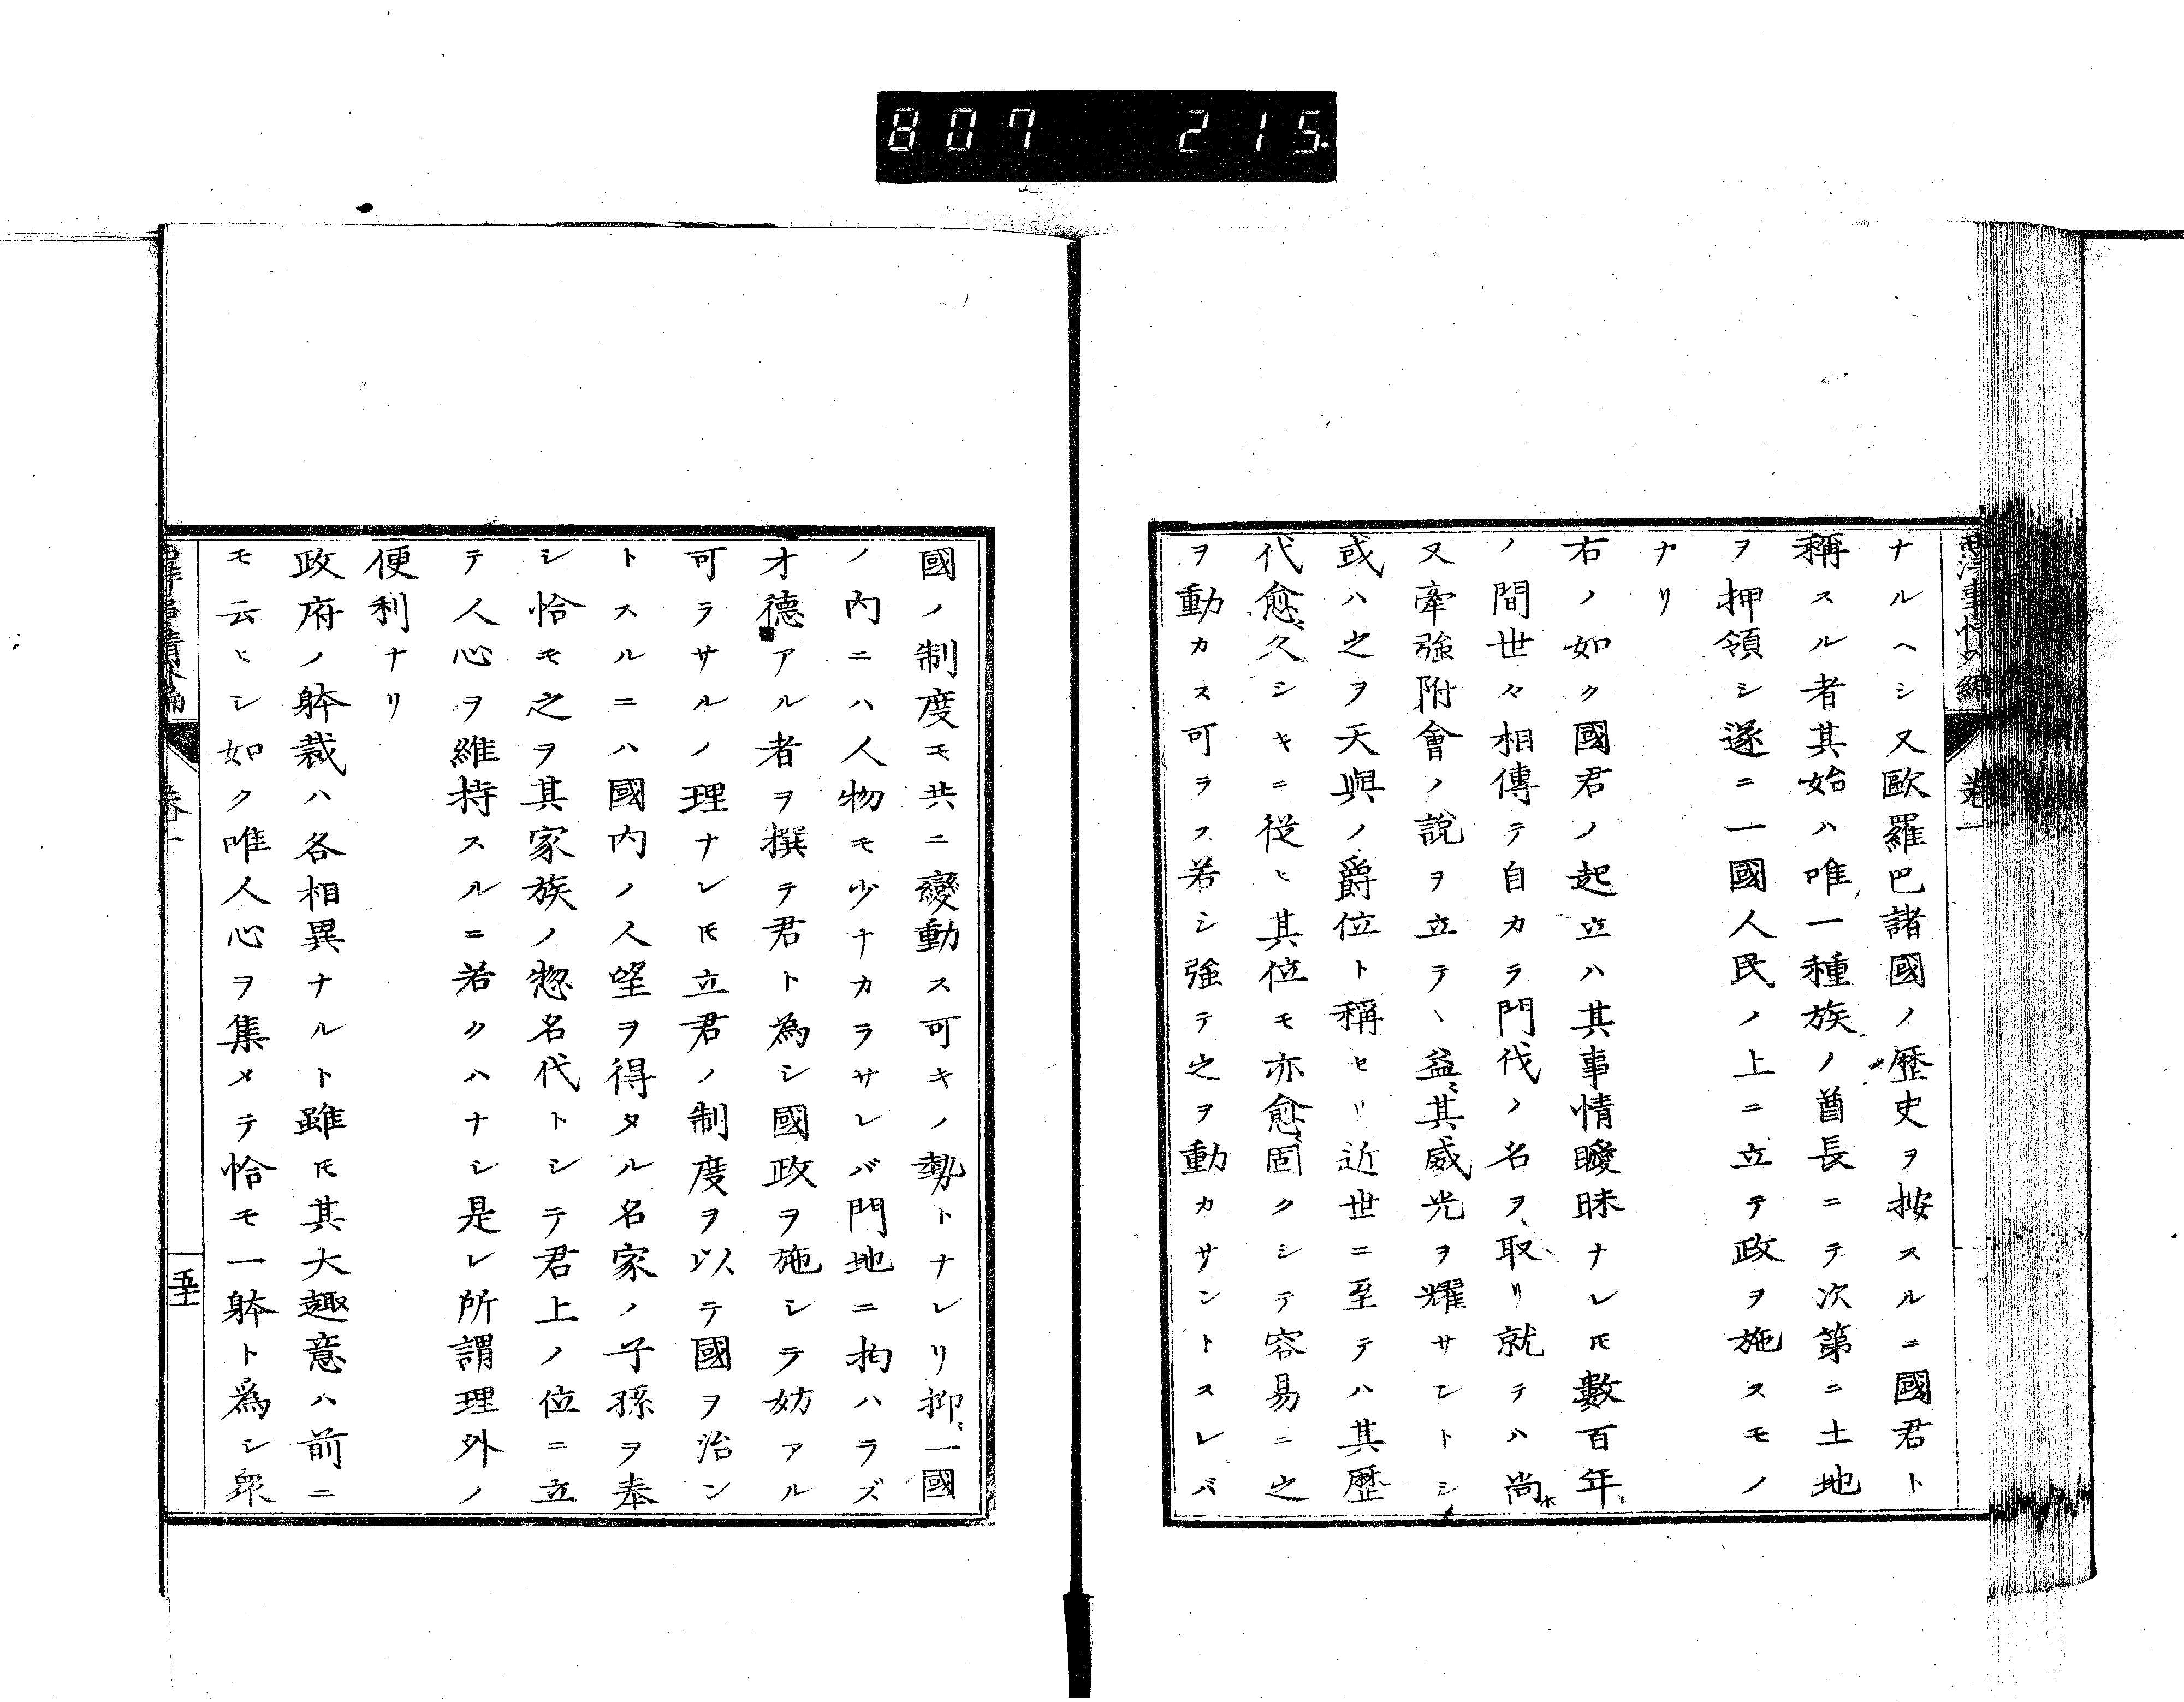 807 215
ナルヘシ又歐羅巴諸國ノ歴史ヲ按スルニ國君ト
稱スル者其始ハ唯一種族ノ酋長ニテ次第ニ土地
ヲ押領シ遂ニ一國人民ノ上ニ立テ政ヲ施スモノ
ナリ
右ノ如ク國君ノ起立ハ其事情曖昧ナレ𪜈數百年
ノ間世々相傳テ自カラ門伐ノ名ヲ取リ就テハ尚
又牽強附會ノ說ヲ立テヽ益〻其威光ヲ耀サントシ
或ハ之ヲ天與ノ爵位ト稱セリ近世ニ至テハ其歴
代愈〻久シキニ從ヒ其位モ亦愈〻固クシテ容易ニ之
ヲ動カス可ラス若シ強テ之ヲ動カサントスレバ
國ノ制度モ共ニ變動ス可キノ勢トナレリ抑〻一國
ノ內ニハ人物モ少ナカラサレバ門地ニ拘ハラズ
才德アル者ヲ撰テ君ト為シ國政ヲ施シテ妨アル
可ラサルノ理ナレ𪜈立君ノ制度ヲ以テ國ヲ治ン
トスルニハ國內ノ人望ヲ得タル名家ノ子孫ヲ奉
シ恰モ之ヲ其家族ノ惣名代トシテ君上ノ位ニ立
テ人心ヲ維持スルニ若クハナシ是レ所謂理外ノ
便利ナリ
政府ノ躰裁ハ各相異ナルト雖𪜈其大趣意ハ前ニ
モ云ヒシ如ク唯人心ヲ集メテ恰モ一躰ト爲シ衆